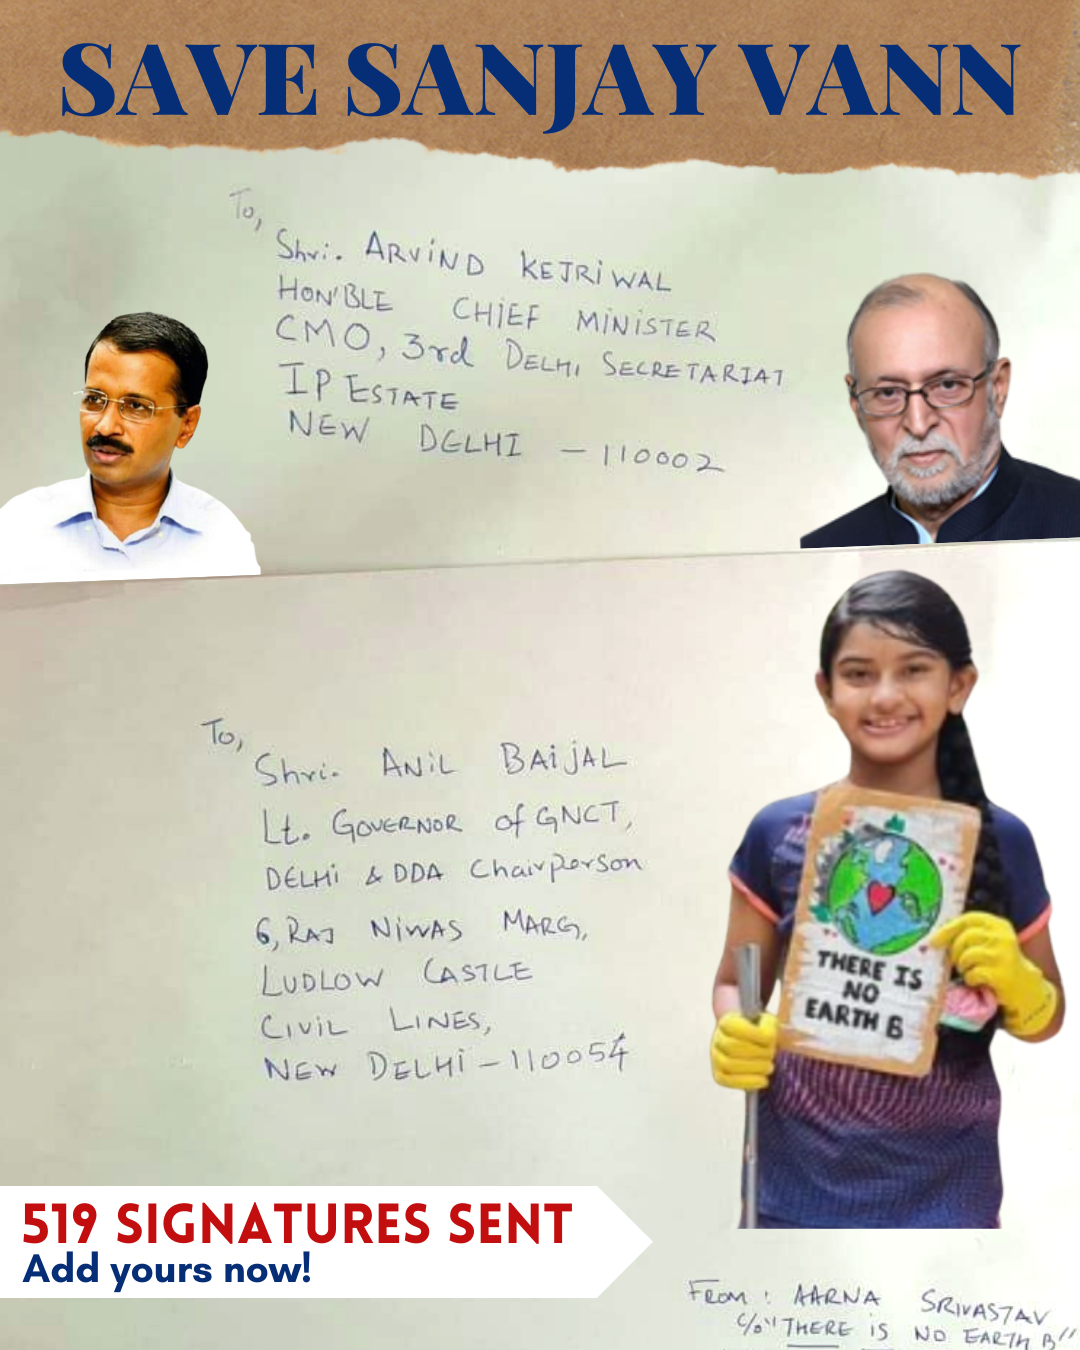 SAVE SANJAY VANN
To,
Shri. ARViND KEJRiWAL
HON'BLE CHiEF MiNiSTER
CMO, 3rd DELHi SECRETARIAT
IP ESTATE
NEW DELHI - 110002
To,
Shri. ANiL BAiJAL
Lt. GOVERNOR of GNCT,
DELHi & DDA Chairperson
6, RAJ NiWAS MARG,
LUDLOW CASTLE
CiViL LINES,
NEW DELHi - 110054
THERE IS
NO
EARTH B
519 SIGNATURES SENT
Add yours now!
FROM : AARNA SRIVASTAV
C/o "THERE iS NO EARTH B"